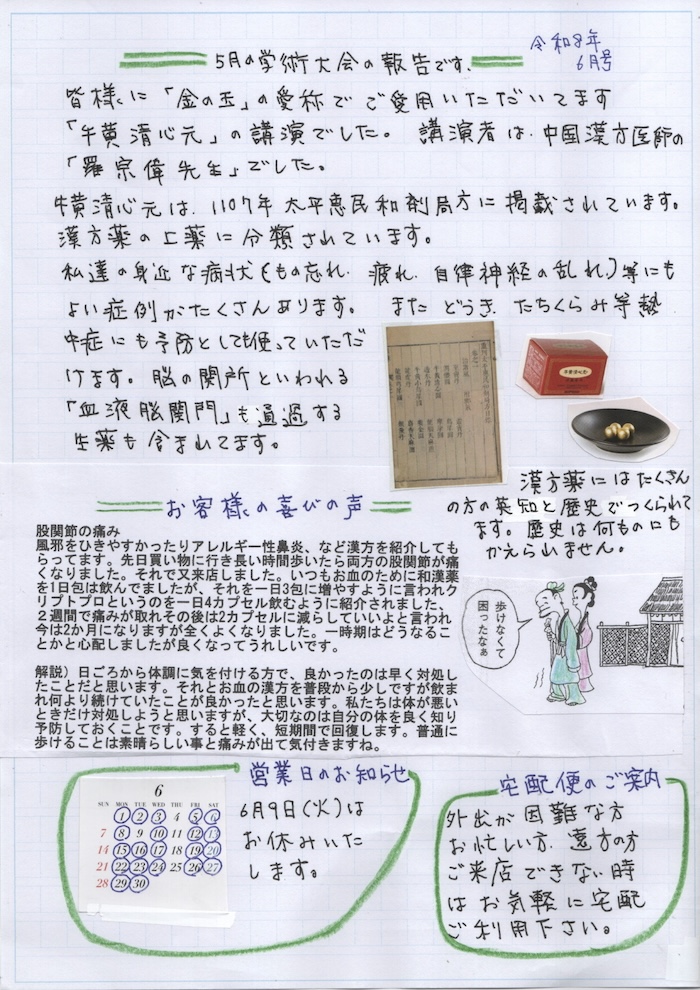 令和8年
6月号
5月の学術大会の報告です、
皆様に「金の玉」の愛称でご愛用いただいてます
「牛黄清心元」の講演でした。講演者は、中国漢方医師の
「羅宗偉先生」でした。
牛黄清心元は、1107年太平恵民和剤局方に掲載されています。
漢方薬の上薬に分類されています。
私達の身近な病状(もの忘れ、疲れ、自律神経の乱れ)等にも
よい症例がたくさんあります。 また どうき、たちくらみ等熱
中症にも予防としても使っていただ
けます。脳の関所といわれる
「血液脳関門」も通過する
生薬も含まれてます。
漢方薬にはたくさん
の方の英知と歴史でつくられて
ます。歴史は何ものにも
かえられません。
お客様の喜びの声
股関節の痛み
風邪をひきやすかったりアレルギー性鼻炎、など漢方を紹介しても
らってます。先日買い物に行き長い時間歩いたら両方の股関節が痛
くなりました。それで又来店しました。いつもお血のために和漢薬
を1日包は飲んでましたが、それを一日3包に増やすように言われク
リプトプロというのを一日4カプセル飲むように紹介されました、
２週間で痛みが取れその後は2カプセルに減らしていいよと言われ
今は2か月になりますが全くよくなりました。一時期はどうなるこ
とかと心配しましたが良くなってうれしいです。
解説）日ごろから体調に気を付ける方で、良かったのは早く対処し
たことだと思います。それとお血の漢方を普段から少しですが飲ま
れ何より続けていたことが良かったと思います。私たちは体が悪い
ときだけ対処しようと思いますが、大切なのは自分の体を良く知り
予防しておくことです。すると軽く、短期間で回復します。普通に
歩けることは素晴らしい事と痛みが出て気付きますね。
歩けなくて
困ったなぁ
営業日のお知らせ
6
SUN MON TUE WED THU FRI SAT
1 2 3 4 5 6
7 8 9 10 11 12 13
14 15 16 17 18 19 20
21 22 23 24 25 26 27
28 29 30
6月9日(火)は
お休みいた
します。
宅配便のご案内
外出が困難な方
お忙しい方、遠方の方
ご来店できない時
はお気軽に宅配
ご利用下さい。